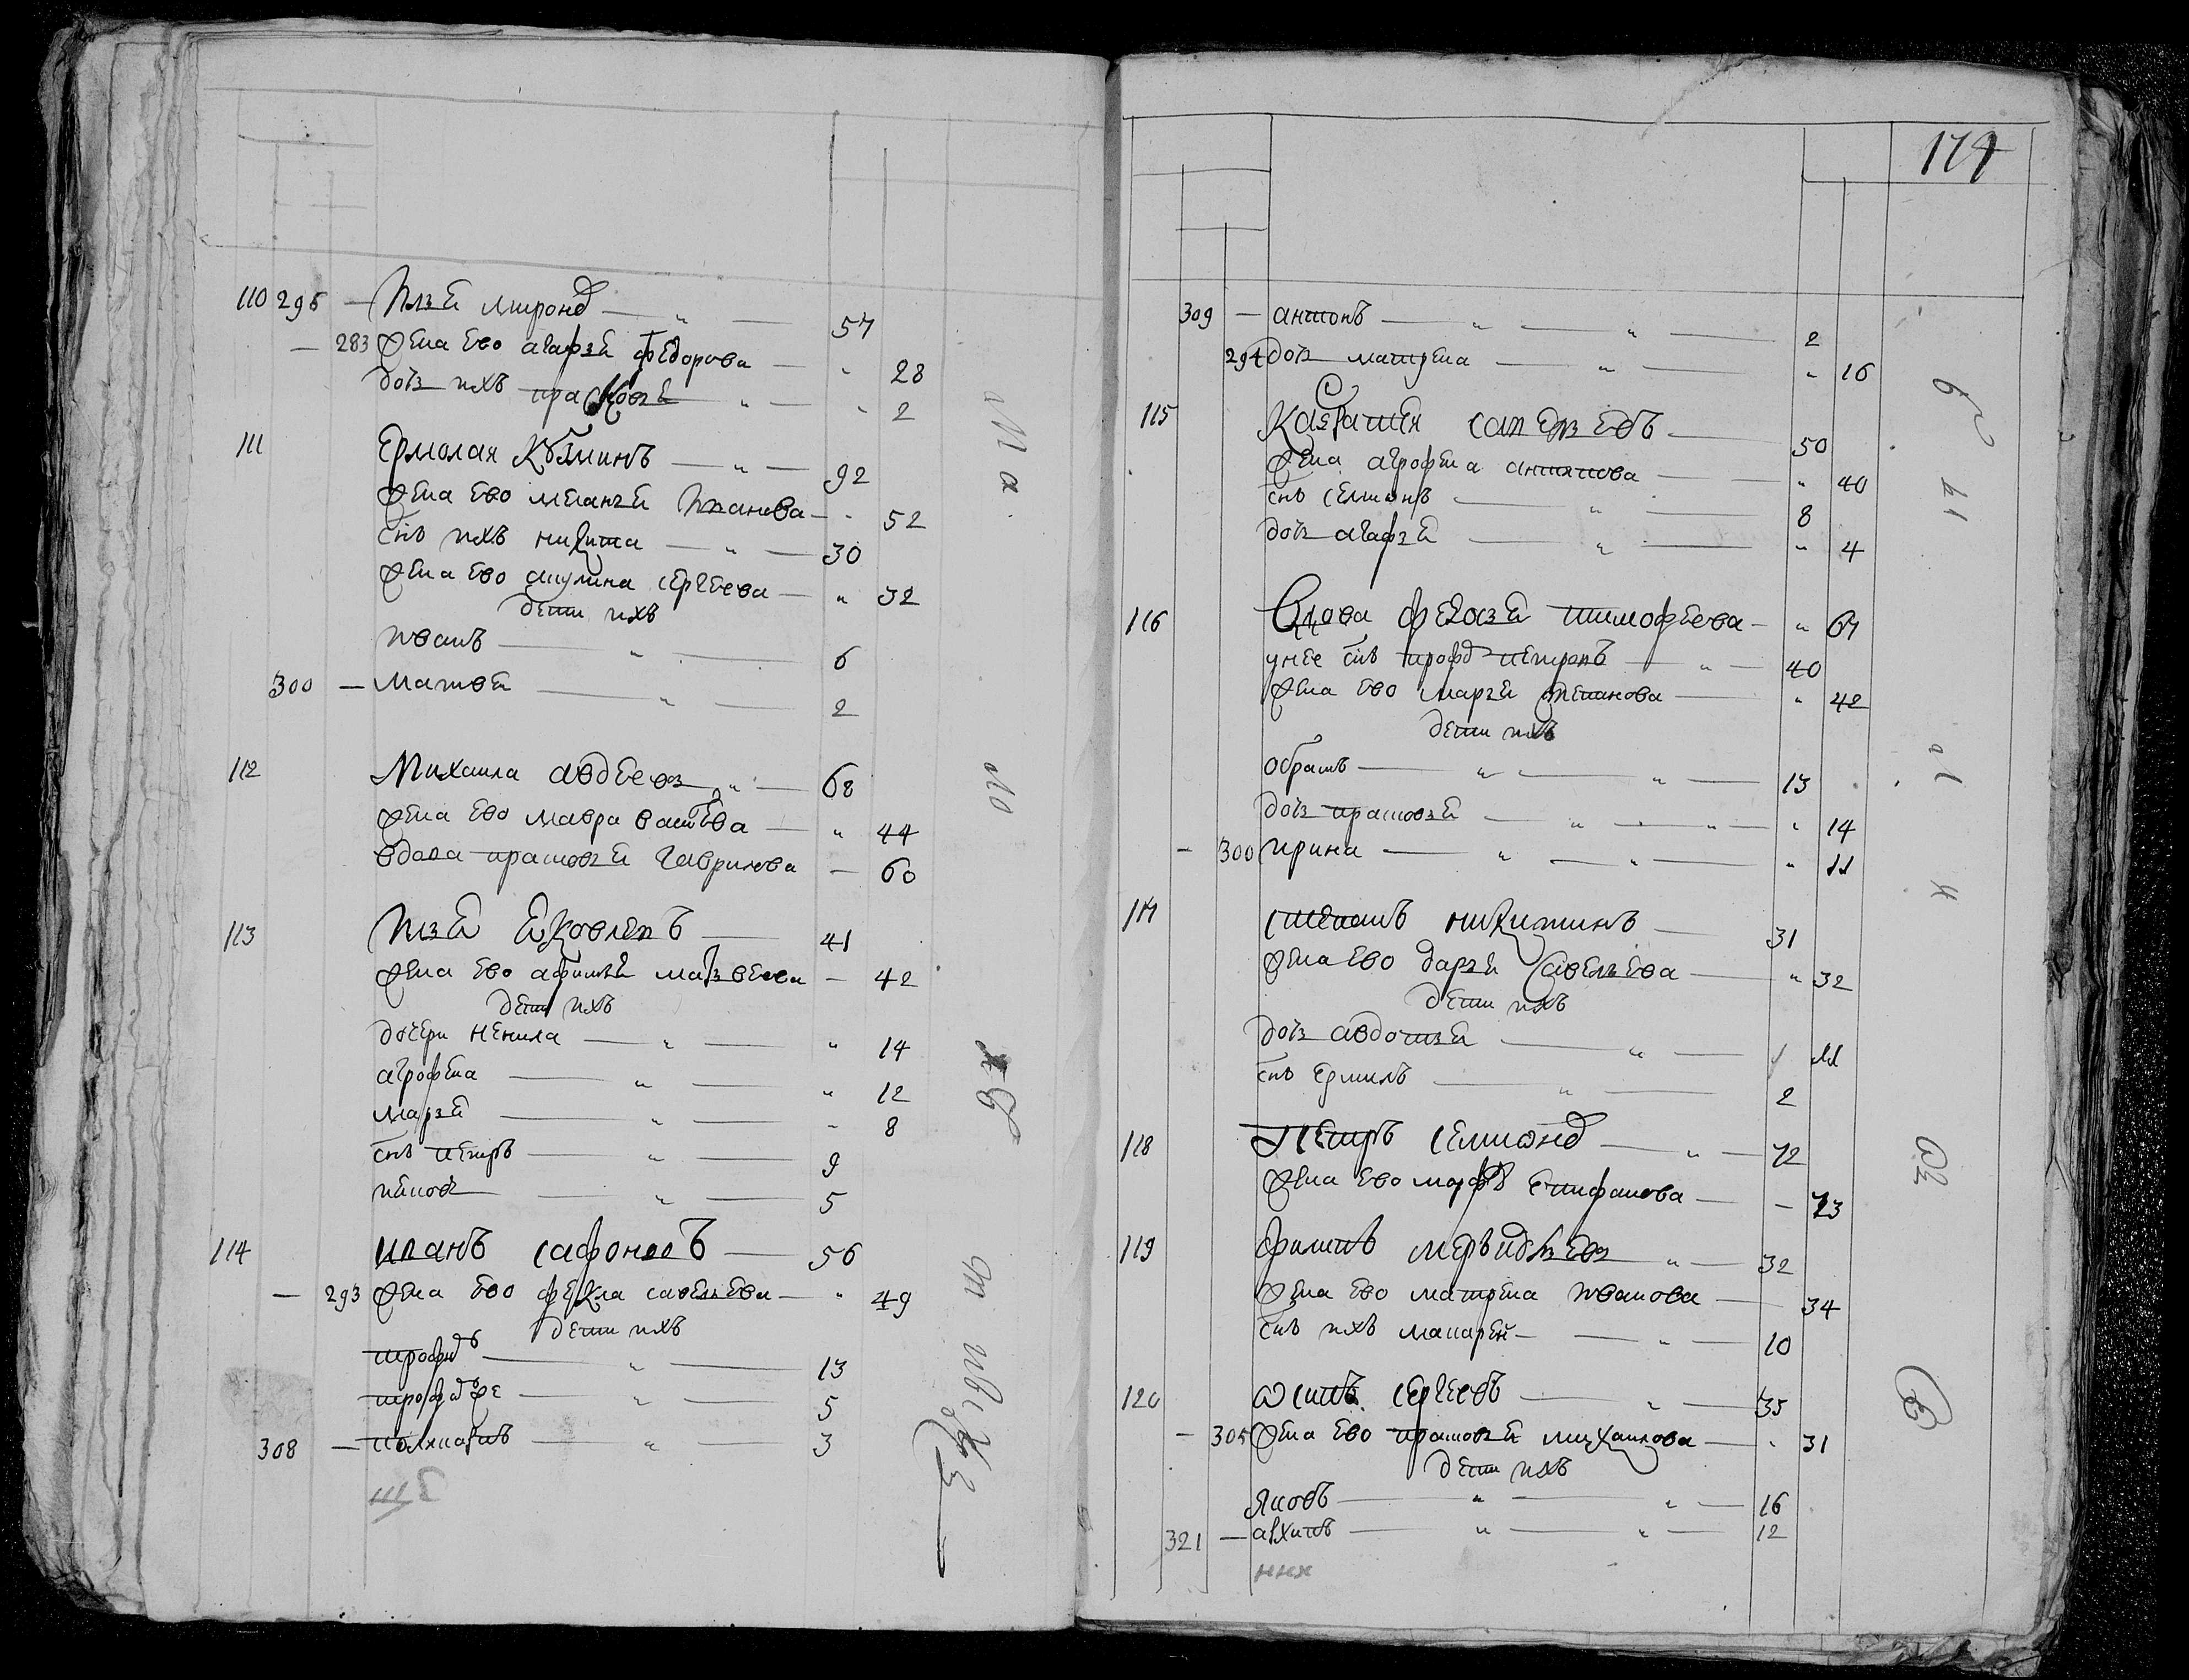 110 296 — Илзя миронд — " — 57
— 283 жена ево агафья федорова — " 28
дочь ихъ прасковья " — " 2
111 Ермолая Кузминъ — " — 92
жена ево меланья Иванова — " 52
снъ ихъ никита — " — 30
жена ево акулина сергеева — " 32
дети ихъ
иванъ — " — 6
300 — матвей — " — 2
112 Михаила авдеевъ — " — 68
жена ево мавра васильева — " 44
вдова прасковья гаврилова — 60
113 Илья яковлевъ — 41
жена ево афимья матвеева — 42
дети ихъ
дочери ненила — " — " 14
агрофена — " — " 12
марья — " — " 8
снъ петръ — " — 9
яковъ — " — 5
114 иванъ сафоновъ — 56
— 293 жена ево фекла савельева — " 49
дети ихъ
трофимъ — " — 13
трофим же — " — 5
308 — — " — 3
179
309 — антонъ — " — " — 2
294 дочь матрена — " — " 16
115 — 50
жена агрофена антипова — " 40
снъ семионъ — " — 8
дочь агафья — " — " 4
116 Вдова федосья тимофеева — " 64
унее снъ трофим петровъ — " — 40
жена ево марья степанова — " 42
дети ихъ
обрамъ — " — " — 13
дочь прасковья — " — " — " 14
— 300 ирина — " — " — " 11
117 степанъ никитинъ — 31
жена ево дарья савельева — " 32
дети ихъ
дочь авдотья — " — 11
снъ ермилъ — " — 2
118 Петръ семионов — " — 72
жена ево марфа епифанова — — 73
119 филипъ " — 32
жена ево матрена иванова — 34
снъ ихъ макарей — — " — 10
120 осипъ сергеевъ — " — 35
— 305 жена ево прасковья михаилова — " 31
дети ихъ
яковъ — " — " — 16
321 — архипъ — " — " — 12